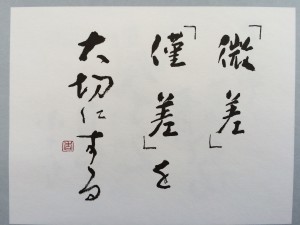 「微差」
「僅差」を
大切にする